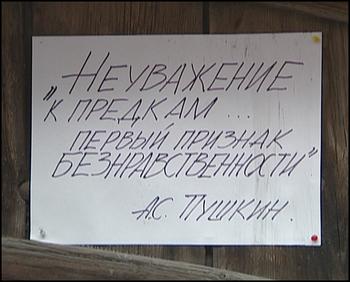 „НЕУВАЖЕНИЕ
К ПРЕДКАМ ...
ПЕРВЫЙ ПРИЗНАК
БЕЗНРАВСТВЕННОСТИ"
А.С. ПУШКИН.